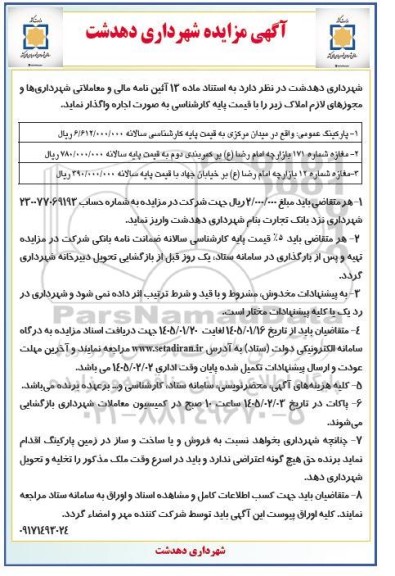 آگهی مزایده شهرداری دهدشت
شهرداری دهدشت در نظر دارد به استناد ماده ۱۳ آئین نامه مالی و معاملاتی شهرداری‌ها و
مجوزهای لازم املاک زیر را با قیمت پایه کارشناسی به صورت اجاره واگذار نماید.
۱- پارکینگ عمومی: واقع در میدان مرکزی به قیمت پایه کارشناسی سالانه ۶/۶۱۲/۰۰۰/۰۰۰ ریال
۲- مغازه شماره ۱۷۱ بازارچه امام رضا (ع) بر کمربندی دوم به قیمت پایه سالانه ۷۸۰/۰۰۰/۰۰۰ ریال
۳- مغازه شماره ۱۲ بازارچه امام رضا (ع) بر خیابان جهاد با قیمت پایه سالانه ۳۹۰/۰۰۰/۰۰۰ ریال
۱- هر متقاضی باید مبلغ ۲/۰۰۰/۰۰۰ ریال جهت شرکت در مزایده به شماره حساب ۲۳۰۰۷۷۰۶۹۱۹۳
شهرداری نزد بانک تجارت بنام شهرداری دهدشت واریز نماید.
۲- هر متقاضی باید ۵٪ قیمت پایه کارشناسی سالانه ضمانت نامه بانکی شرکت در مزایده
تهیه و پس از بارگذاری در سامانه ستاد، یک روز قبل از بازگشایی تحویل دبیرخانه شهرداری
گردد.
۳- به پیشنهادات مخدوش، مشروط و یا قید و شرط ترتیب اثر داده نمی شود و شهرداری در
رد یک یا کلیه پیشنهادات مختار است.
۴- متقاضیان باید از تاریخ ۱۴۰۵/۰۱/۱۶ لغایت ۱۴۰۵/۰۱/۲۰ جهت دریافت اسناد مزایده به درگاه
سامانه الکترونیکی دولت (ستاد) به آدرس www.setadiran.ir مراجعه نمایند و آخرین مهلت
عودت و ارسال پیشنهادات تکمیل شده پایان وقت اداری ۱۴۰۵/۰۲/۰۲ می باشد.
۵- کلیه هزینه‌های آگهی، محضرنویسی، سامانه ستاد، کارشناسی و... برعهده برنده می‌باشد.
۶- پاکات در تاریخ ۱۴۰۵/۰۲/۰۳ ساعت ۱۰ صبح در کمیسیون معاملات شهرداری بازگشایی
می‌شوند.
۷- چنانچه شهرداری بخواهد نسبت به فروش و یا ساخت و ساز در زمین پارکینگ اقدام
نماید برنده حق هیچ گونه اعتراضی ندارد و باید در اسرع وقت ملک مذکور را تخلیه و تحویل
شهرداری دهد.
۸- متقاضیان باید جهت کسب اطلاعات کامل و مشاهده اسناد و اوراق به سامانه ستاد مراجعه
نمایند. کلیه اوراق پیوست این آگهی باید توسط شرکت کننده مهر و امضاء گردد.
۰۹۱۷۱۴۹۳۰۲۴
شهرداری دهدشت
ParsNamadData
۰۲۱-۸۸۳۴۹۶۷۰-۵